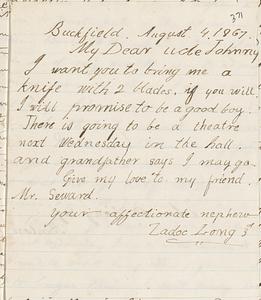 371
Buckfield. August 4, 1967.
My Dear Uncle Johnny
I want you to bring me a
knife with 2 blades, if you will
I will promise to be a good boy.
There is going to be a theatre
next Wednesday in the hall.
and grandfather says I may go.
Give my love to my friend.
Mr. Seward.
your affectionate nephew
Zadoc Long 3